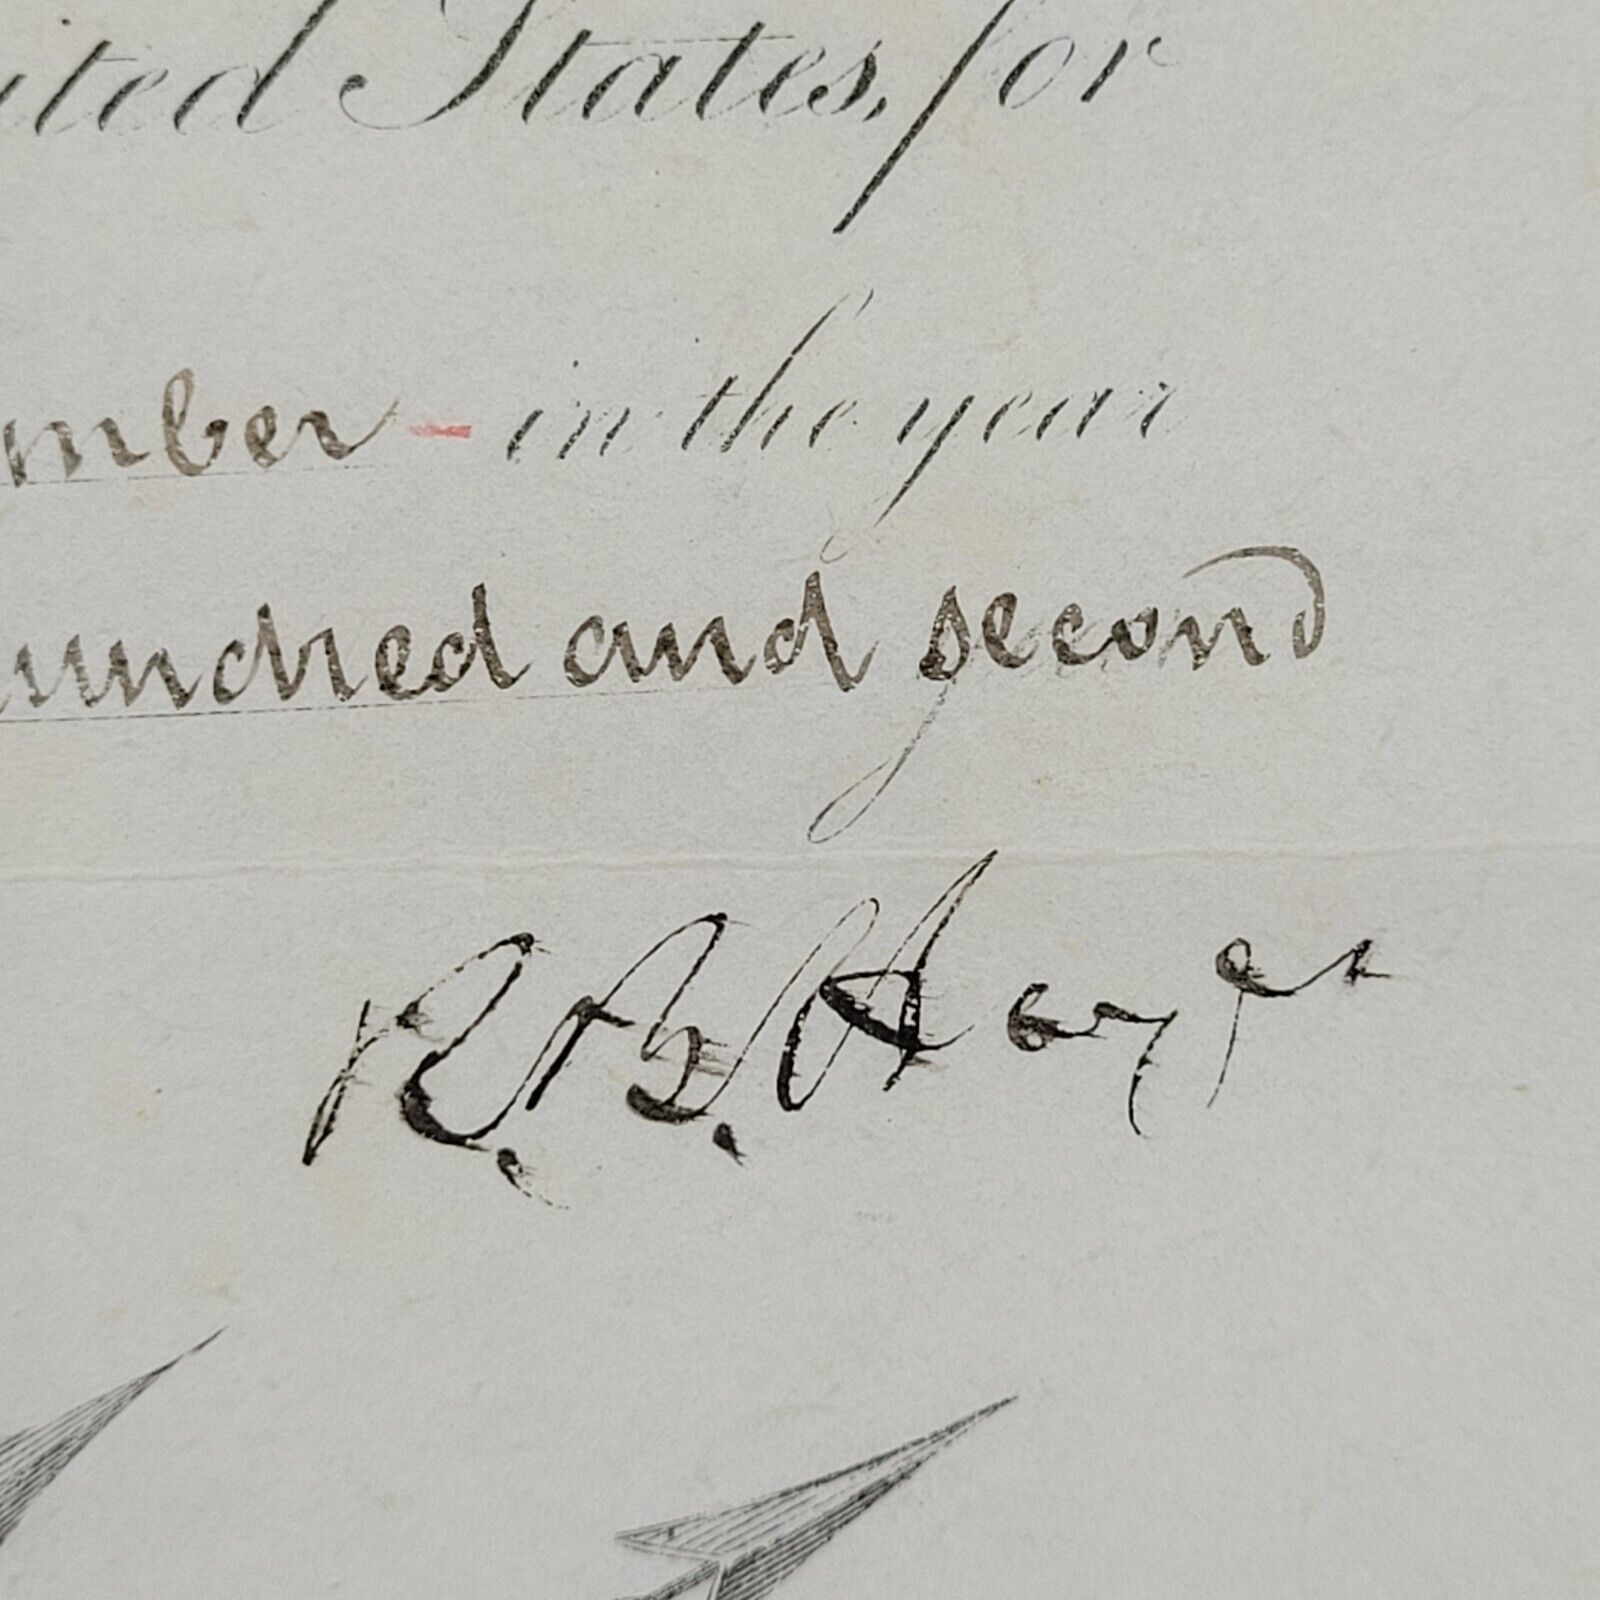 ited States, for
mber - in the year
hundred and second
R. B. Hayes